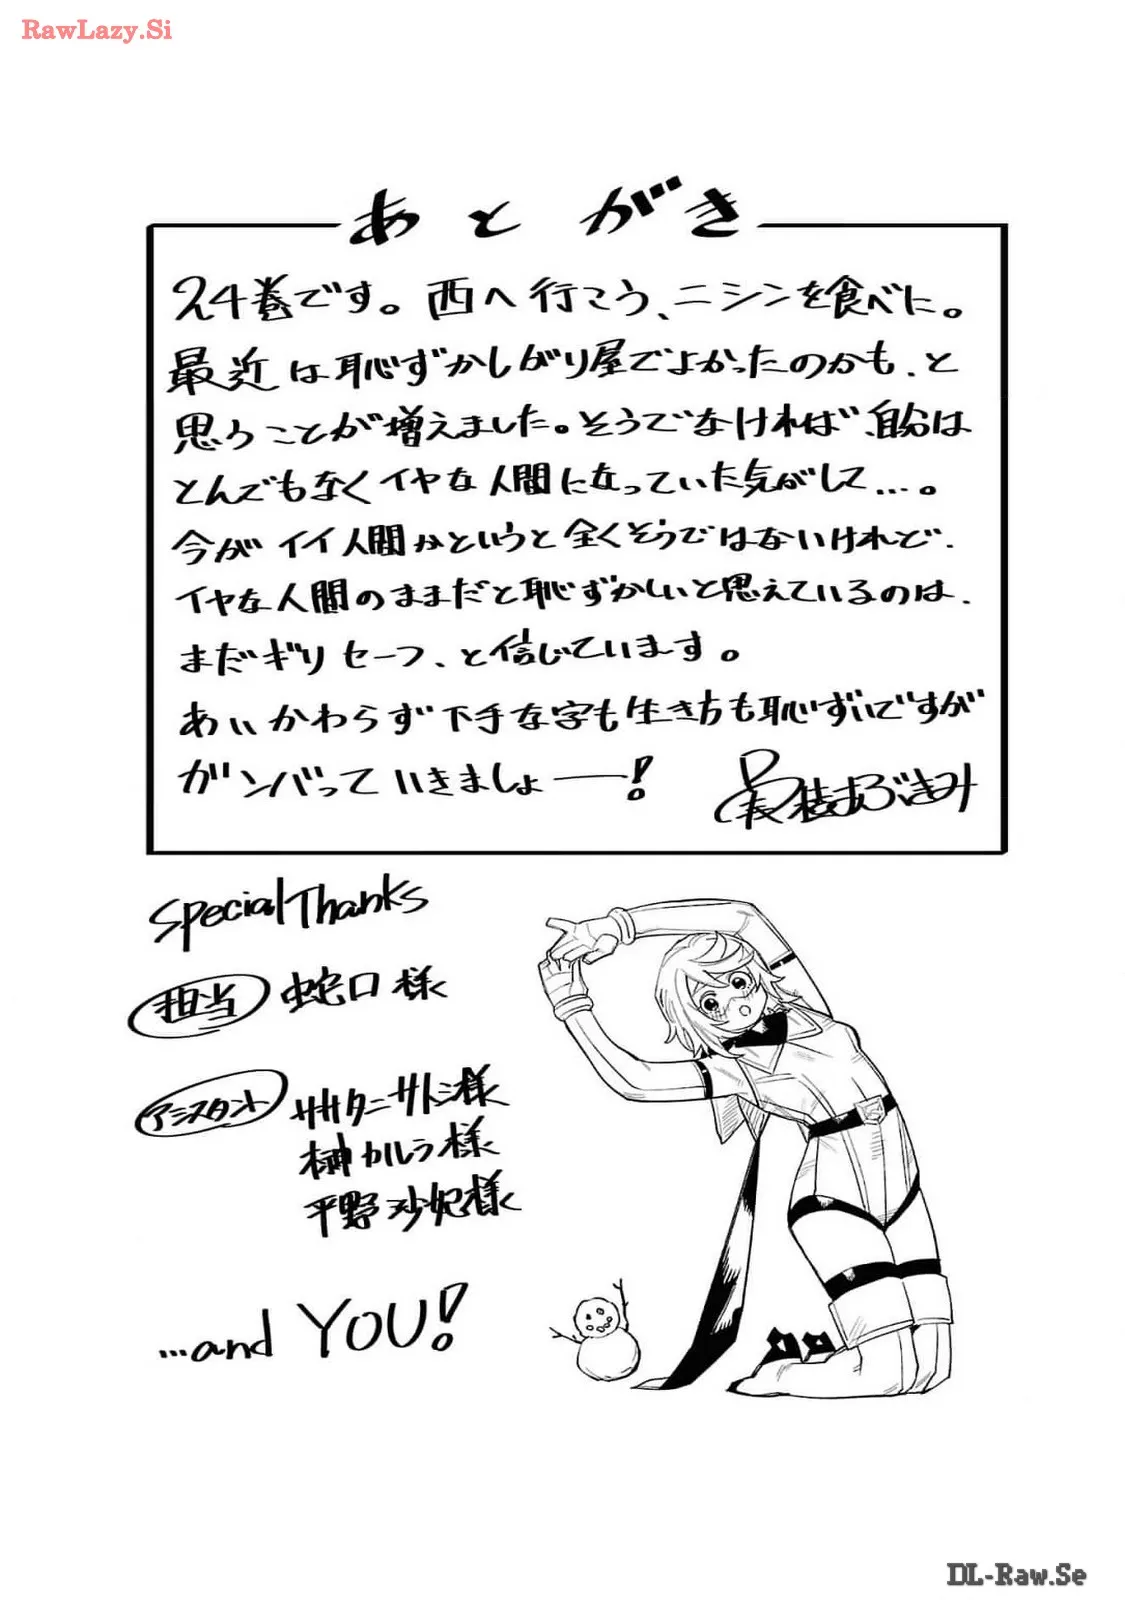 RawLazy.Si
あとがき
24巻です。西へ行こう、ニシンを食べに。
最近は恥ずかしがり屋でよかったのかも、と
思うことが増えました。そうでなければ、自分は
とんでもなくイヤな人間になっていた気がして…。
今がイイ人間かというと全くそうではないけれど、
イヤな人間のままだと恥ずかしいと思えているのは、
まだギリセーフ、と信じています。
あいかわらず下手な字も生き方も恥ずいですが
ガンバっていきましょーー!
Special Thanks
担当 蛇口様
アシスタント ササタニサトシ様
榊カルラ様
平野沙妃様
...and YOU!
DL-Raw.Se